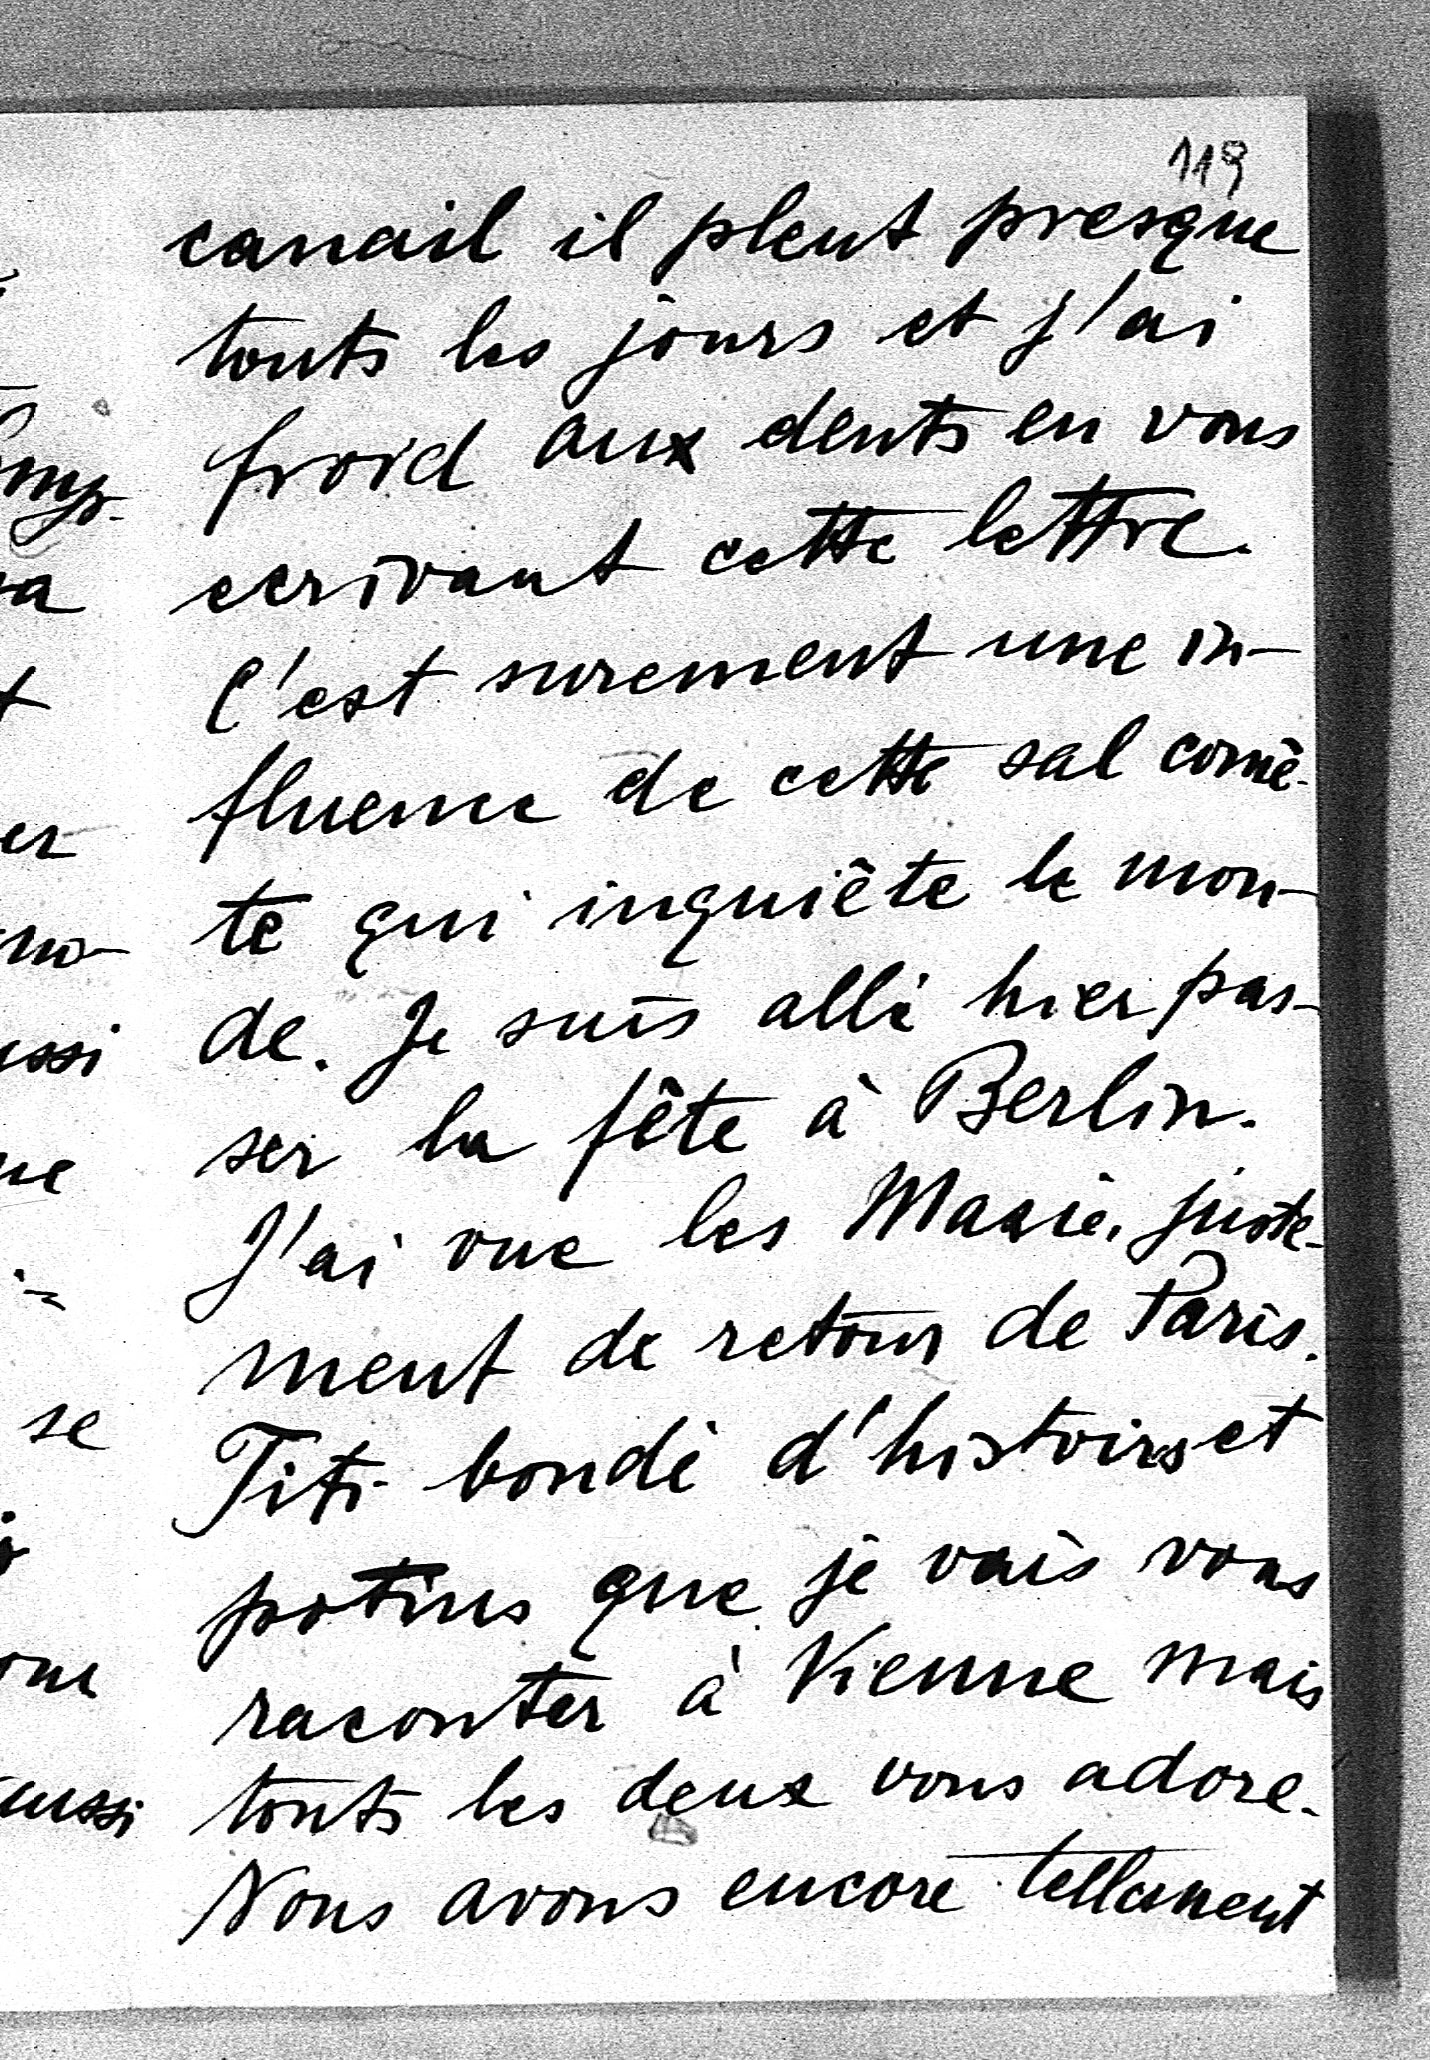 119
canail il pleut presque
touts les jours et j'ai
froid aux dents en vous
ecrivant cette lettre.
C'est surement une in-
fluence de cette sal comè-
te qui inquiête le mon-
de. Je suis allé hier pas-
ser la fête à Berlin.
J'ai vue les Masié, juste-
ment de retour de Paris.
Titi bondé d'histoires et
potins que je vais vous
raconter à Vienne mais
touts les deux vous adore.
Nous avons encore tellament